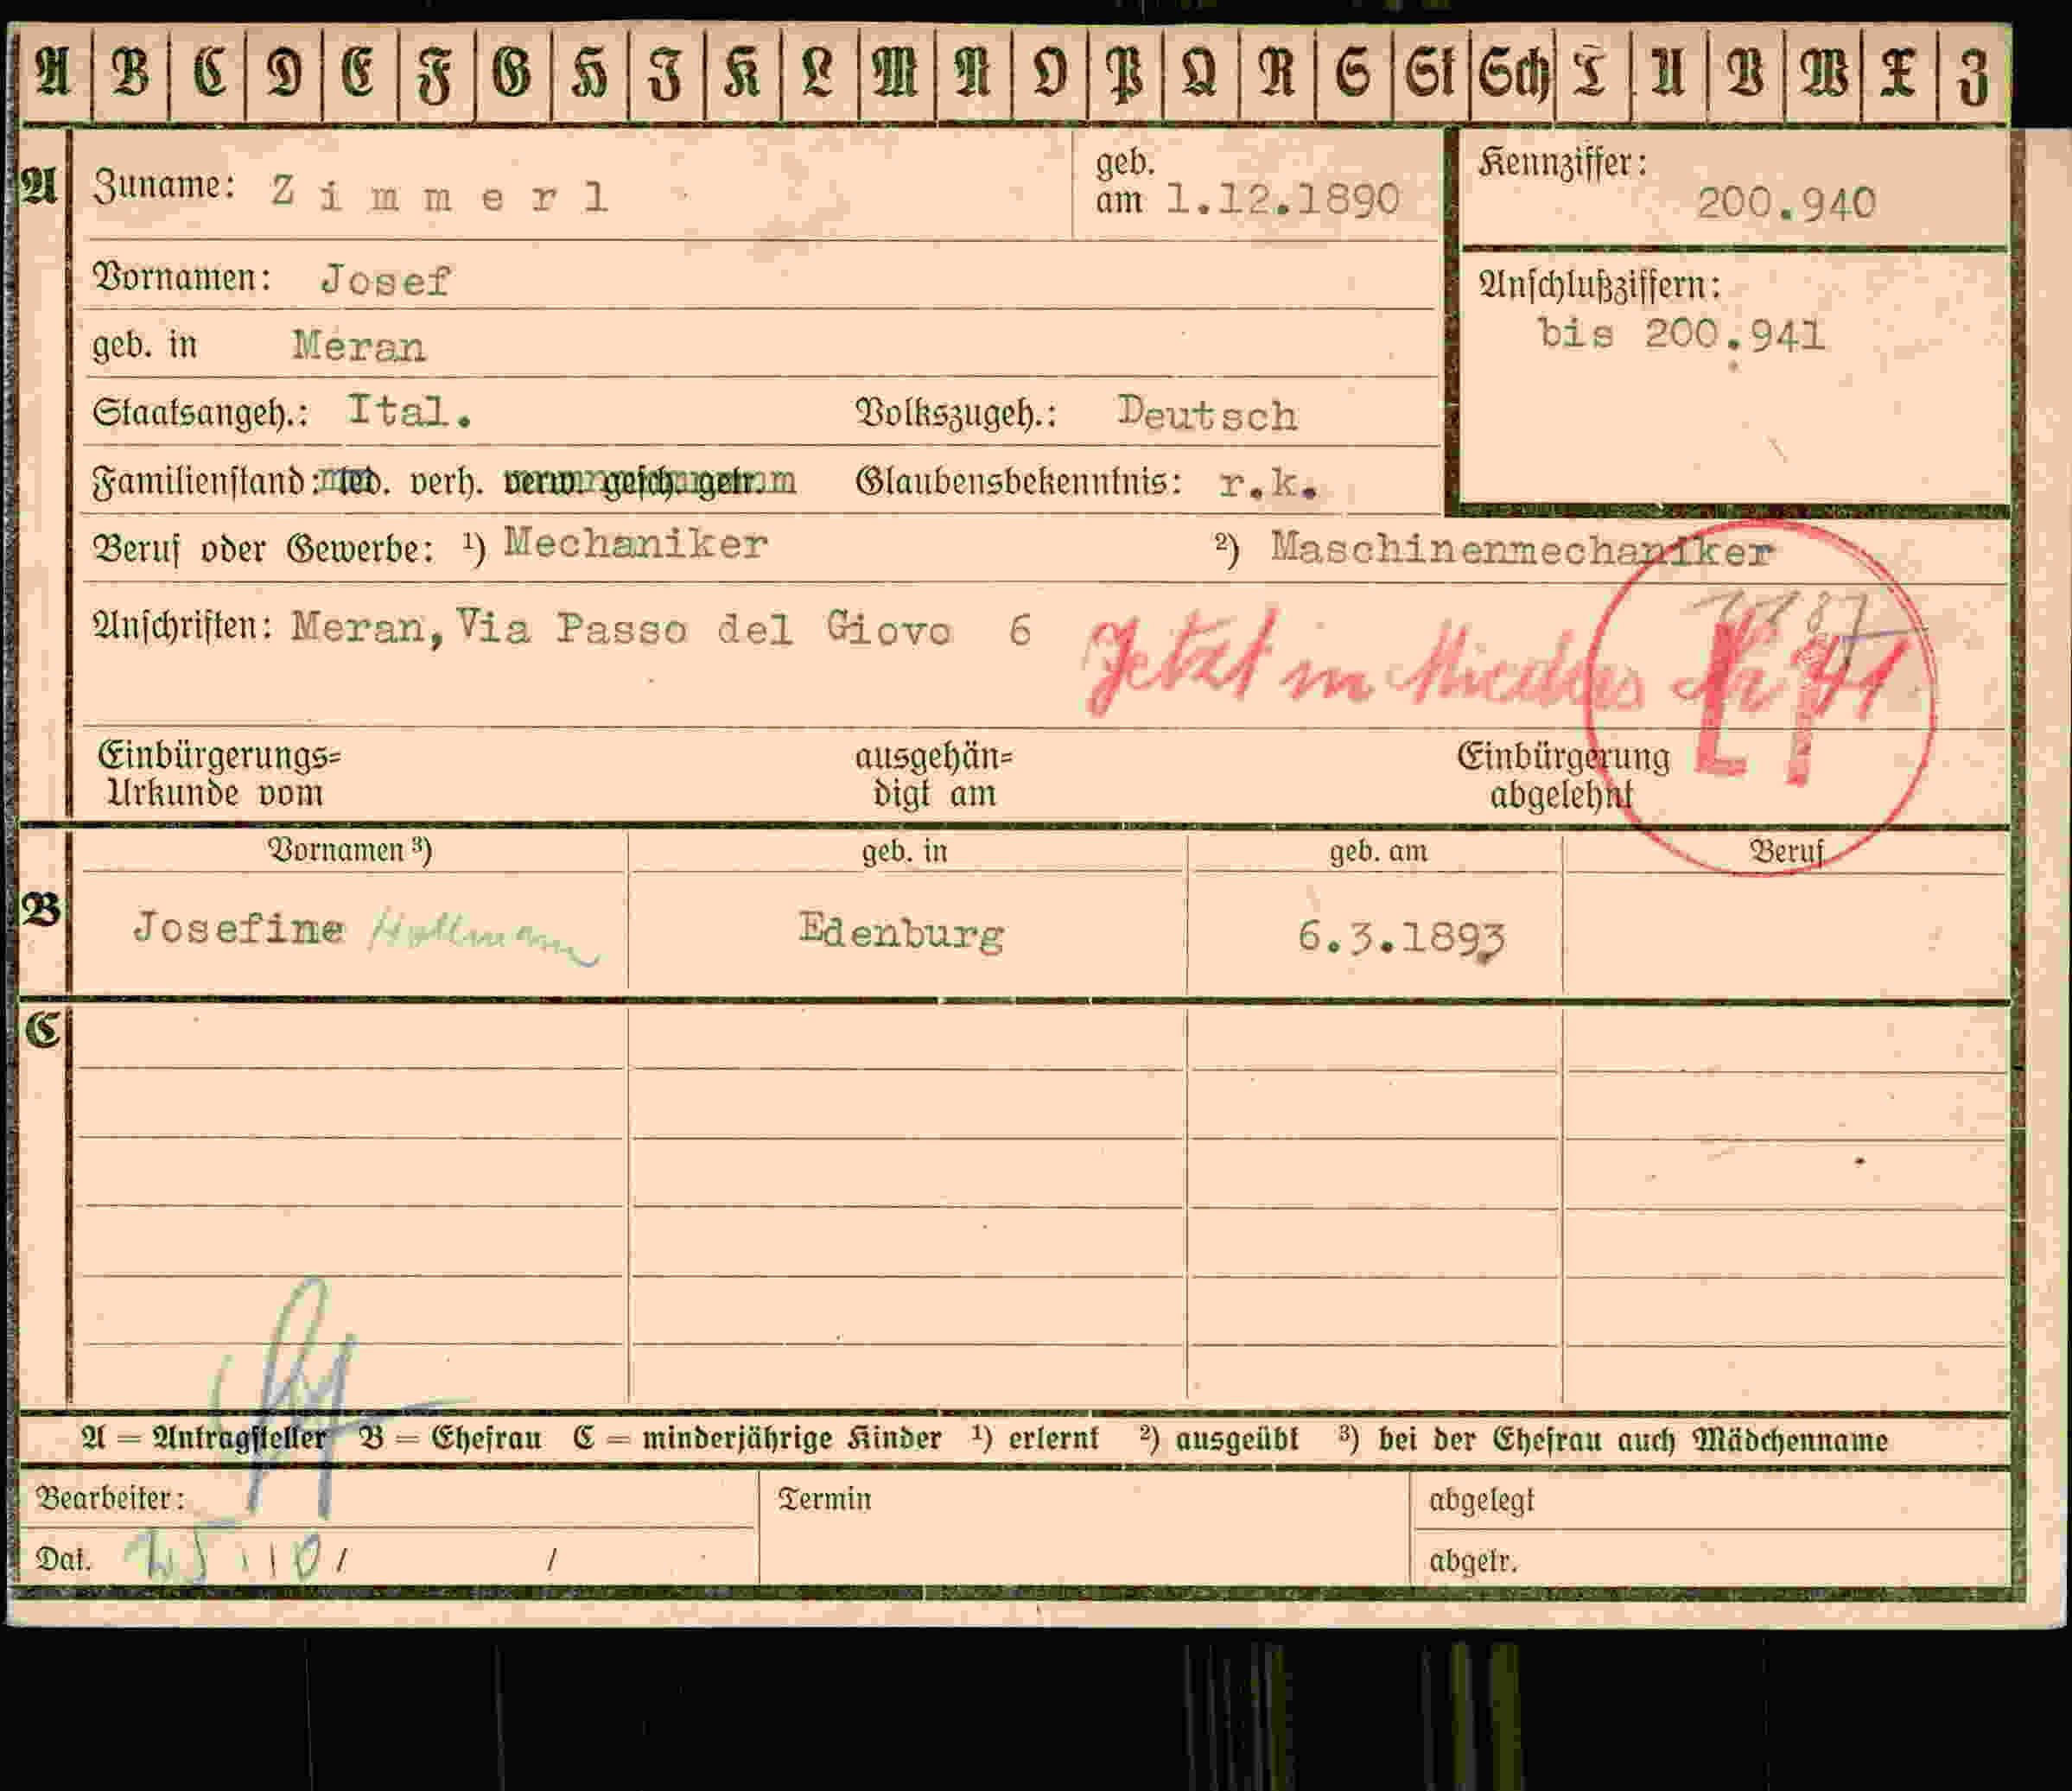 A B C D E F G H J K L M N O P Q R S St Sch T U V W X Z
A Zuname: Zimmerl geb. am 1.12.1890 Kennziffer: 200.940
Vornamen: Josef
Anschlußziffern: bis 200.941
geb. in Meran
Staatsangeh.: Ital. Volkszugeh.: Deutsch
Familienstand: led. verh. verw. gesch. getr. Glaubensbekenntnis: r.k.
Beruf oder Gewerbe: ¹) Mechaniker ²) Maschinenmechaniker
Anschriften: Meran, Via Passo del Giovo 6 Jetzt in Mieders Nr 41
Einbürgerungs= Urkunde vom ausgehän= digt am Einbürgerung abgelehnt
Vornamen ³) geb. in geb. am Beruf
B Josefine Edenburg 6.3.1893
C
A = Antragsteller B = Ehefrau C = minderjährige Kinder ¹) erlernt ²) ausgeübt ³) bei der Ehefrau auch Mädchenname
Bearbeiter: Termin abgelegt
Dat. 25.10/ / abgetr.